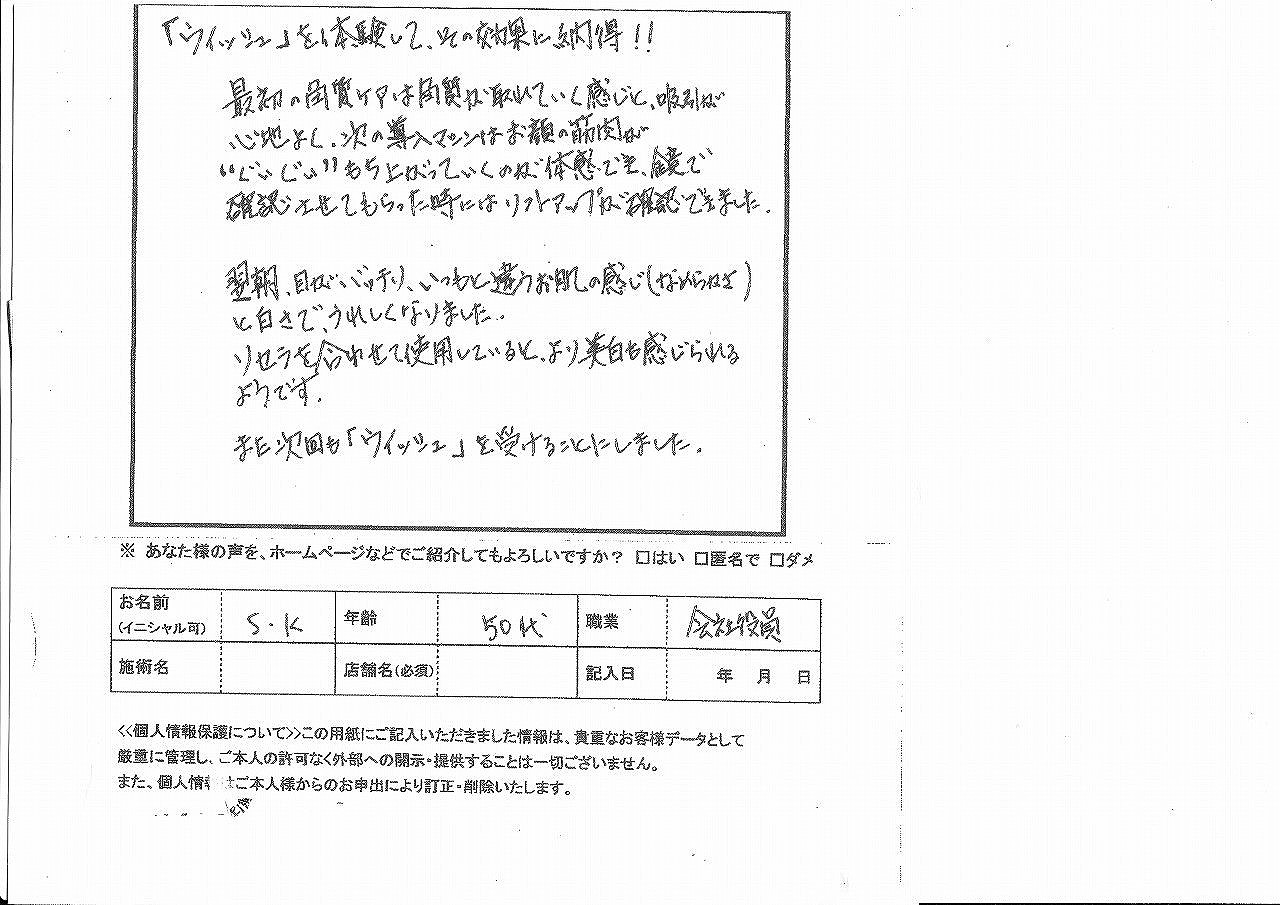 「ウィッシュ」を体験して、その効果に納得!!
最初の角質ケアは角質が取れていく感じと、吸引が
心地よく、次の導入マシンはお顔の筋肉が
“ぐいぐい”もち上がっていくのが体感でき、鏡で
確認させてもらった時にはリフトアップが確認できました.
翌朝、目がパッチリ、いつもと違うお肌の感じ(なめらかさ)
と白さで、うれしくなりました.
リセラを合わせて使用していると、より美白も感じられる
ようです.
また次回も「ウィッシュ」を受けることにしました.
※ あなた様の声を、ホームページなどでご紹介してもよろしいですか？ □はい □匿名で □ダメ
お名前 (イニシャル可) S・K 年齢 50代 職業 会社役員
施術名 店舗名(必須) 記入日 年 月 日
<<個人情報保護について>>この用紙にご記入いただきました情報は、貴重なお客様データとして
厳重に管理し、ご本人の許可なく外部への開示・提供することは一切ございません。
また、個人情報はご本人様からのお申出により訂正・削除いたします。